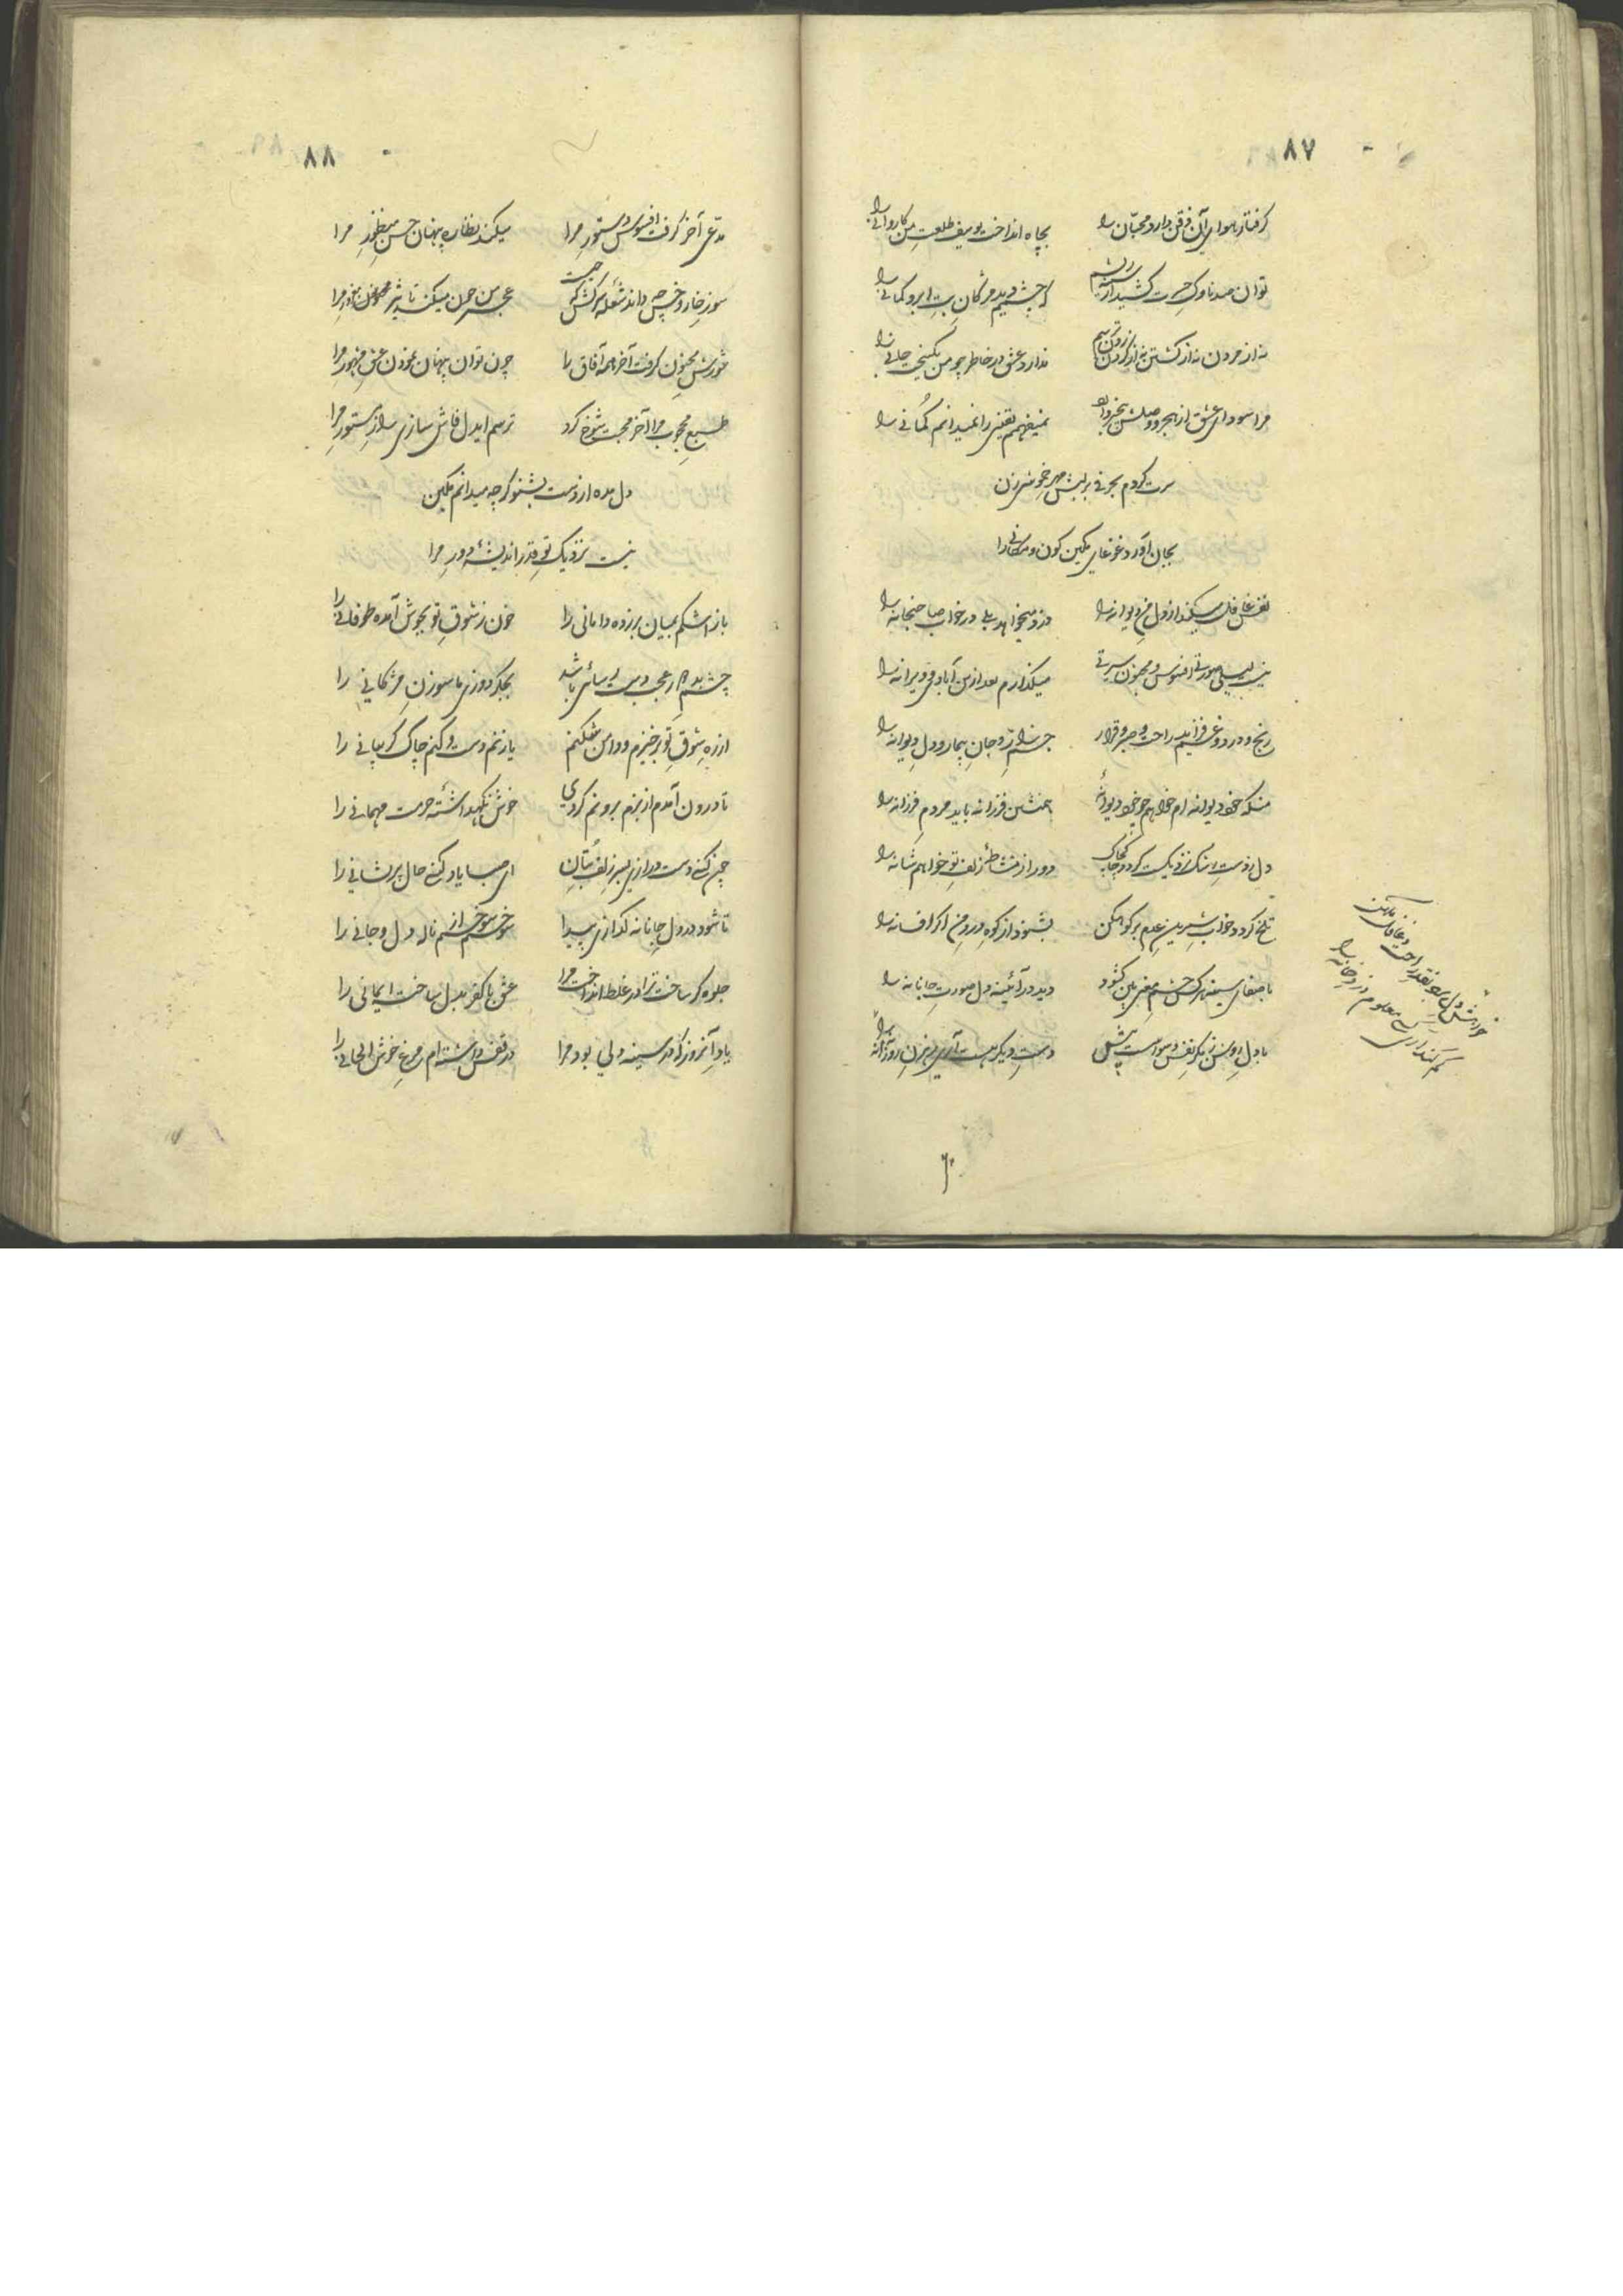 ۸۷
گرفتار هوای آن ذقن دارد محبّان را بچاه انداخت یوسف طلعت من کاروانی را
توان صد ناوک حسرت کشید از سینه ریشم که چشم دید مژگان بت ابرو کمانی را
نه از مردن نه از کشتن نه از گردن زدن ترسم ندارد عشق در خاطر چو من یک نیم جانی را
مرا سودای عشق از هجر و وصلش بیخبر دارد نمیفهمم یقینی را نمیدانم گمانی را
سرت گردم بحرفی بر لبش مهر خموشی زن
بجان آورد غوغای مکین کون و مکانی را
نفس غافل میکند از دل من دیوانه را دزد میخواهد بلی در خواب صاحبخانه را
نیست لیلی صورتی افسوس و مجنون سیرتی میگذارم بعد ازین آبادی و ویرانه را
رنج و درد و غم فزاید راحت و صبر و قرار جسم زار و جان بیمار و دل دیوانه را
منکه خود دیوانه ام خواهم چو خود دیوانهٔ همنشین فرزانه باید مردم فرزانه را
دل ز دست رشک نزدیکست گردد چاک چاک دور از مشاطهٔ زلف تو خواهم شانه را
تلخ گردد خواب شیرین عدم بر کوهکن بشنود از کوه درد من اگر افسانه را
با صفای سینه هر کس چشم معنی بین گشود دید در آئینه دل صورت جانانه را
با دل روشن ز مکر نفس و سواست به پیش دست دیگر هست آری رهزن روزانه را
خواهش دل برد نقد راحت و غافل مکین
گم کند آری کسی معلوم دزد خانه را
۸۸
مدّعی آخر گرفت افسوس دستور مرا میکند نظاره پنهان حسن منظور مرا
سوز خار و خس چه داند شعلهٔ سرکش که چیست عجز من حسن میکند تاثیر مغرور مرا
شورش مجنون گرفت آخر همه آفاق را چون توان پنهان نمودن عشق مشهور مرا
طبع محجوب مرا آخر محبت شوخ کرد ترسم ایدل فاش سازی راز مستور مرا
دل مده از دست بشنو گرچه میدانم مکین
نیست نزدیک تو قدر اندیشهٔ دور مرا
باز اشکم بمیان بر زده دامانی را خون ز شوق تو بجوش آمده طوفانی را
چشم بد دور عجب دست رسائی باشد بجگر دوزی ما سوزن مژگانی را
از ره شوق تو برخیزم و دامن شکنم باز نم دست و کنم چاک گریبانی را
تا درون آمدم از بزم برونم کردی خوش نگهداشتهٔ حرمت مهمانی را
چین کنی دست درازی بسر زلف بتان ای صبا یاد کنی حال پریشانی را
تا شود در دل جانانه گداز پیدا سوختم سوختم از ناله دل و جانی را
جلوه گر ساخت ترا در غلط انداخت مرا عشق با کفر بدل ساخت ایمانی را
یاد آنروز که در سینه دلی بود مرا در قفس داشته ام مرغ خوش الحانی را